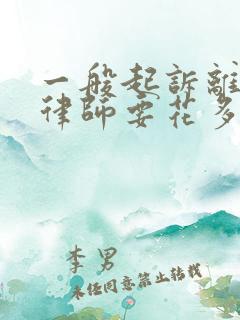 一般起訴離
律師要花多
李男
未经同意禁止转载